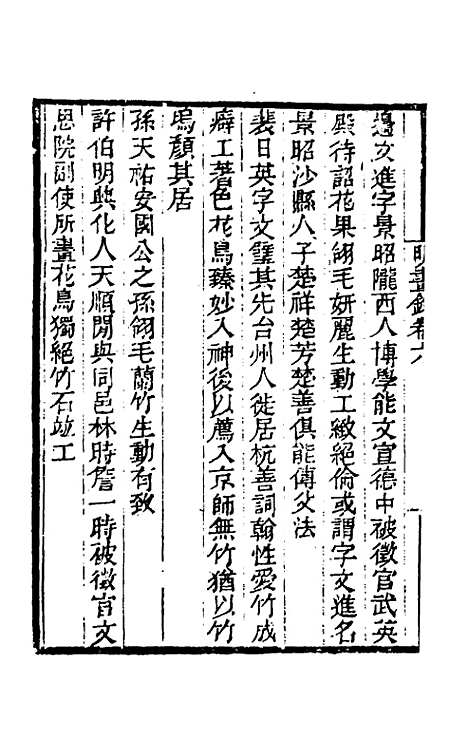 明畫錄卷六
邊文進字景昭隴西人博學能文宣德中被徵官武英
殿待詔花果翎毛妍麗生動工緻絕倫或謂字文進名
景昭沙縣人子楚祥楚芳楚善俱能傳父法
裴日英字文璧其先台州人徙居杭善詞翰性愛竹成
癖工著色花鳥臻妙入神後以薦入京師無竹猶以竹
塢顏其居
孫天祐安國公之孫翎毛蘭竹生動有致
許伯明興化人天順閒與同邑林時詹一時被徵官文
思院副使所畫花鳥獨絕竹石竝工